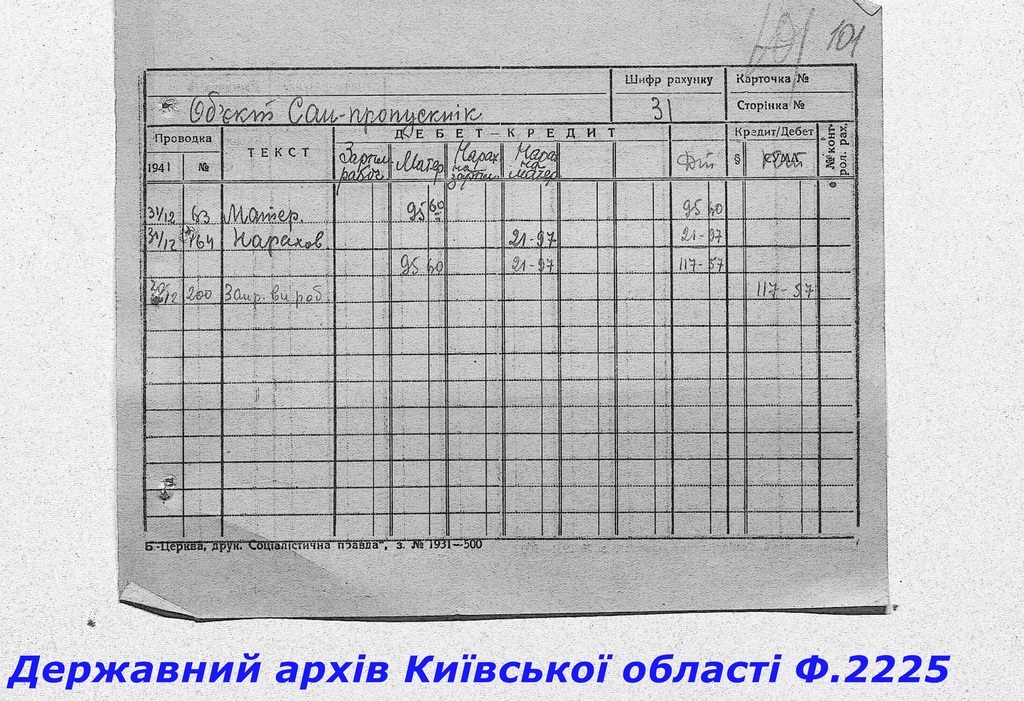 101 101
Шифр рахунку Карточка №
31 Сторінка №
Об'єкт Сан-пропускнік
Проводка ТЕКСТ ДЕБЕТ—КРЕДИТ Кредит/Дебет № конт-рол. рах.
1941 № Зарпл. рабоч. Матер. Нарах. на зарпл. Нарах. на матер. Дт §
31/12 63 Матер. 95 60 95 60
31/12 164 Нарахов. 21-97 21-97
95 60 21-97 117-57
/12 200 117-57
Б.-Церква, друк. „Соціалістична правда", з. № 1931—500
Державний архів Київської області Ф.2225